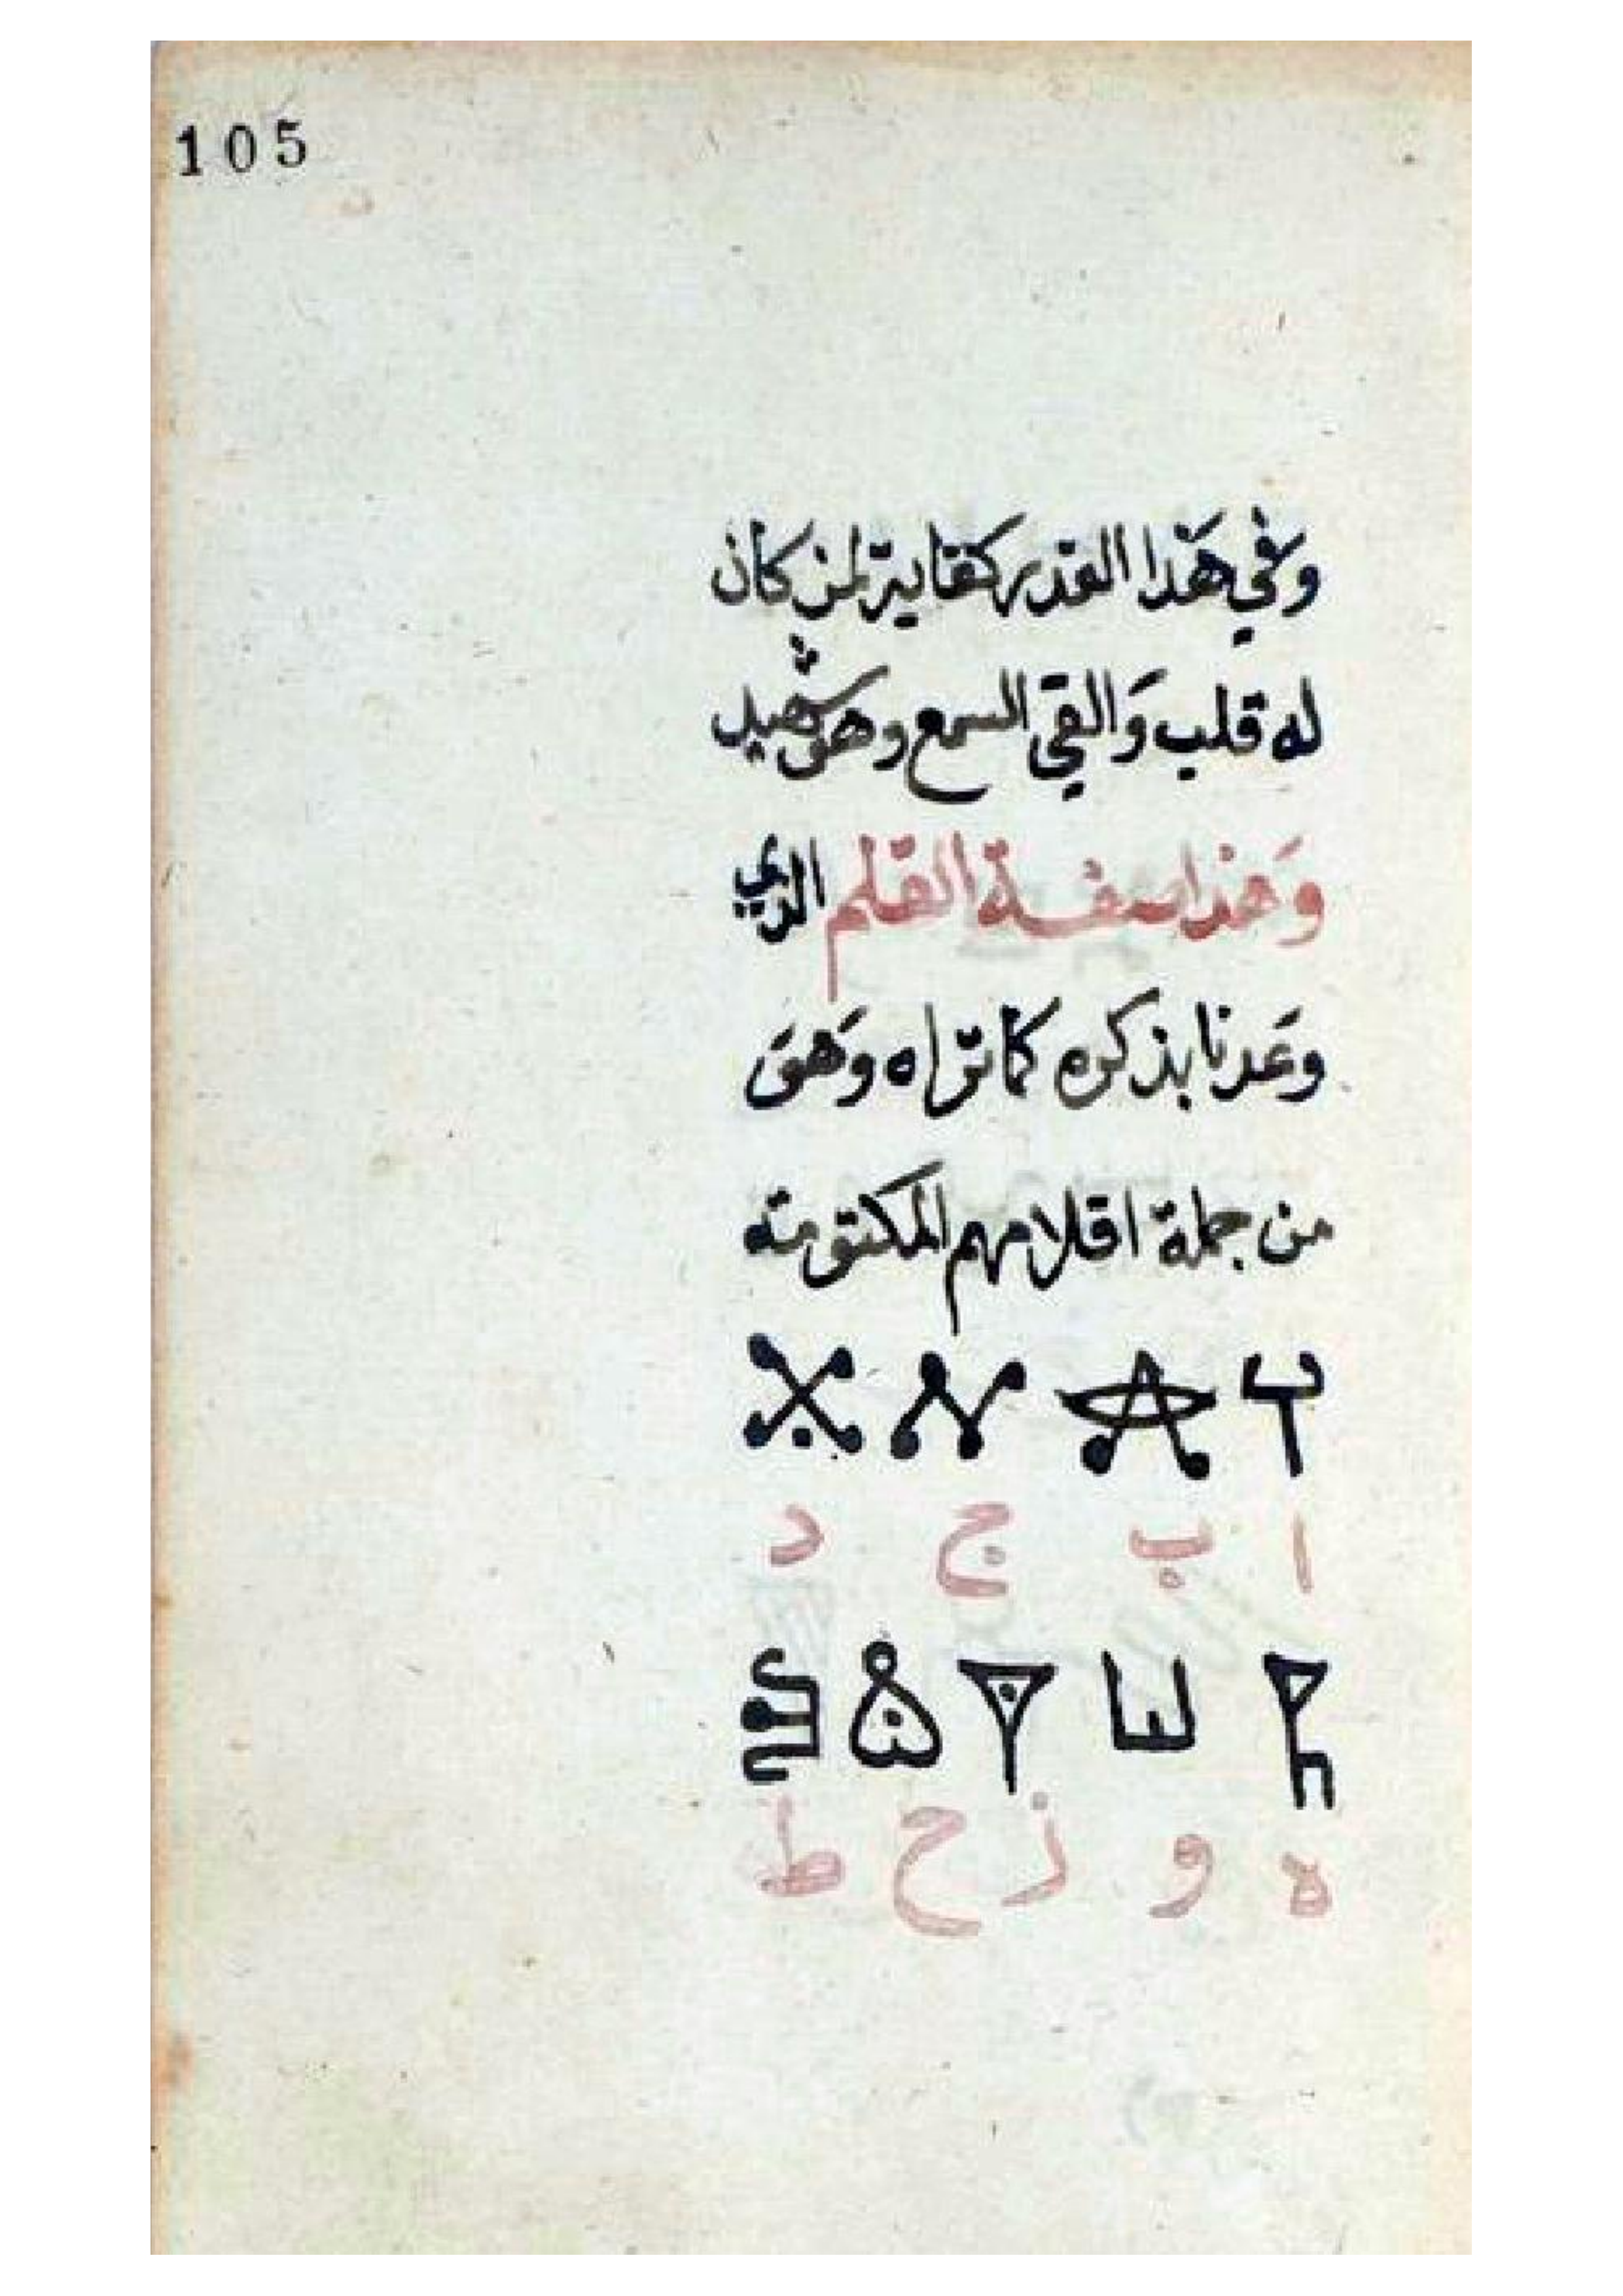 105
وفي هذا القدر كفاية لمن كان
له قلب وَالقي السمع وهو شهيد
وَهذا صفة القلم الذي
وعَدنا بذكره كما تراه وَهوَ
من جملة اقلامهم المكتومة
ا ب ج د
ه و ز ح ط